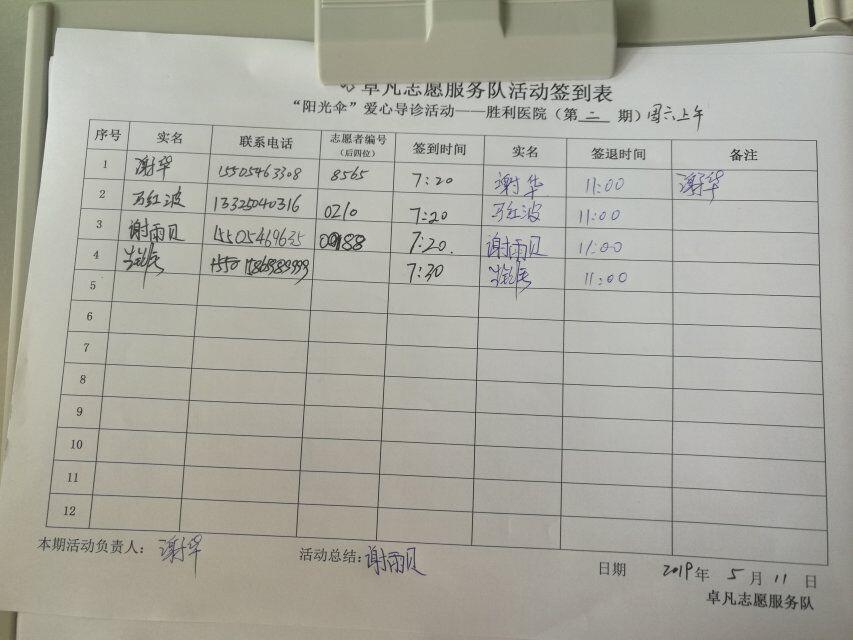 卓凡志愿服务队活动签到表
“阳光伞”爱心导诊活动——胜利医院（第 二 期）周六上午
序号 实名 联系电话 志愿者编号（后四位） 签到时间 实名 签退时间 备注
1 谢华 15505463308 8565 7:20 谢华 11:00 谢华
2 万红波 13325040316 0210 7:20 万红波 11:00
3 谢雨贝 15505469635 7:20. 谢雨贝 11:00
4 7:30 11:00
5
6
7
8
9
10
11
12
本期活动负责人： 谢华 活动总结: 谢雨贝 日期 2019 年 5 月 11 日
卓凡志愿服务队